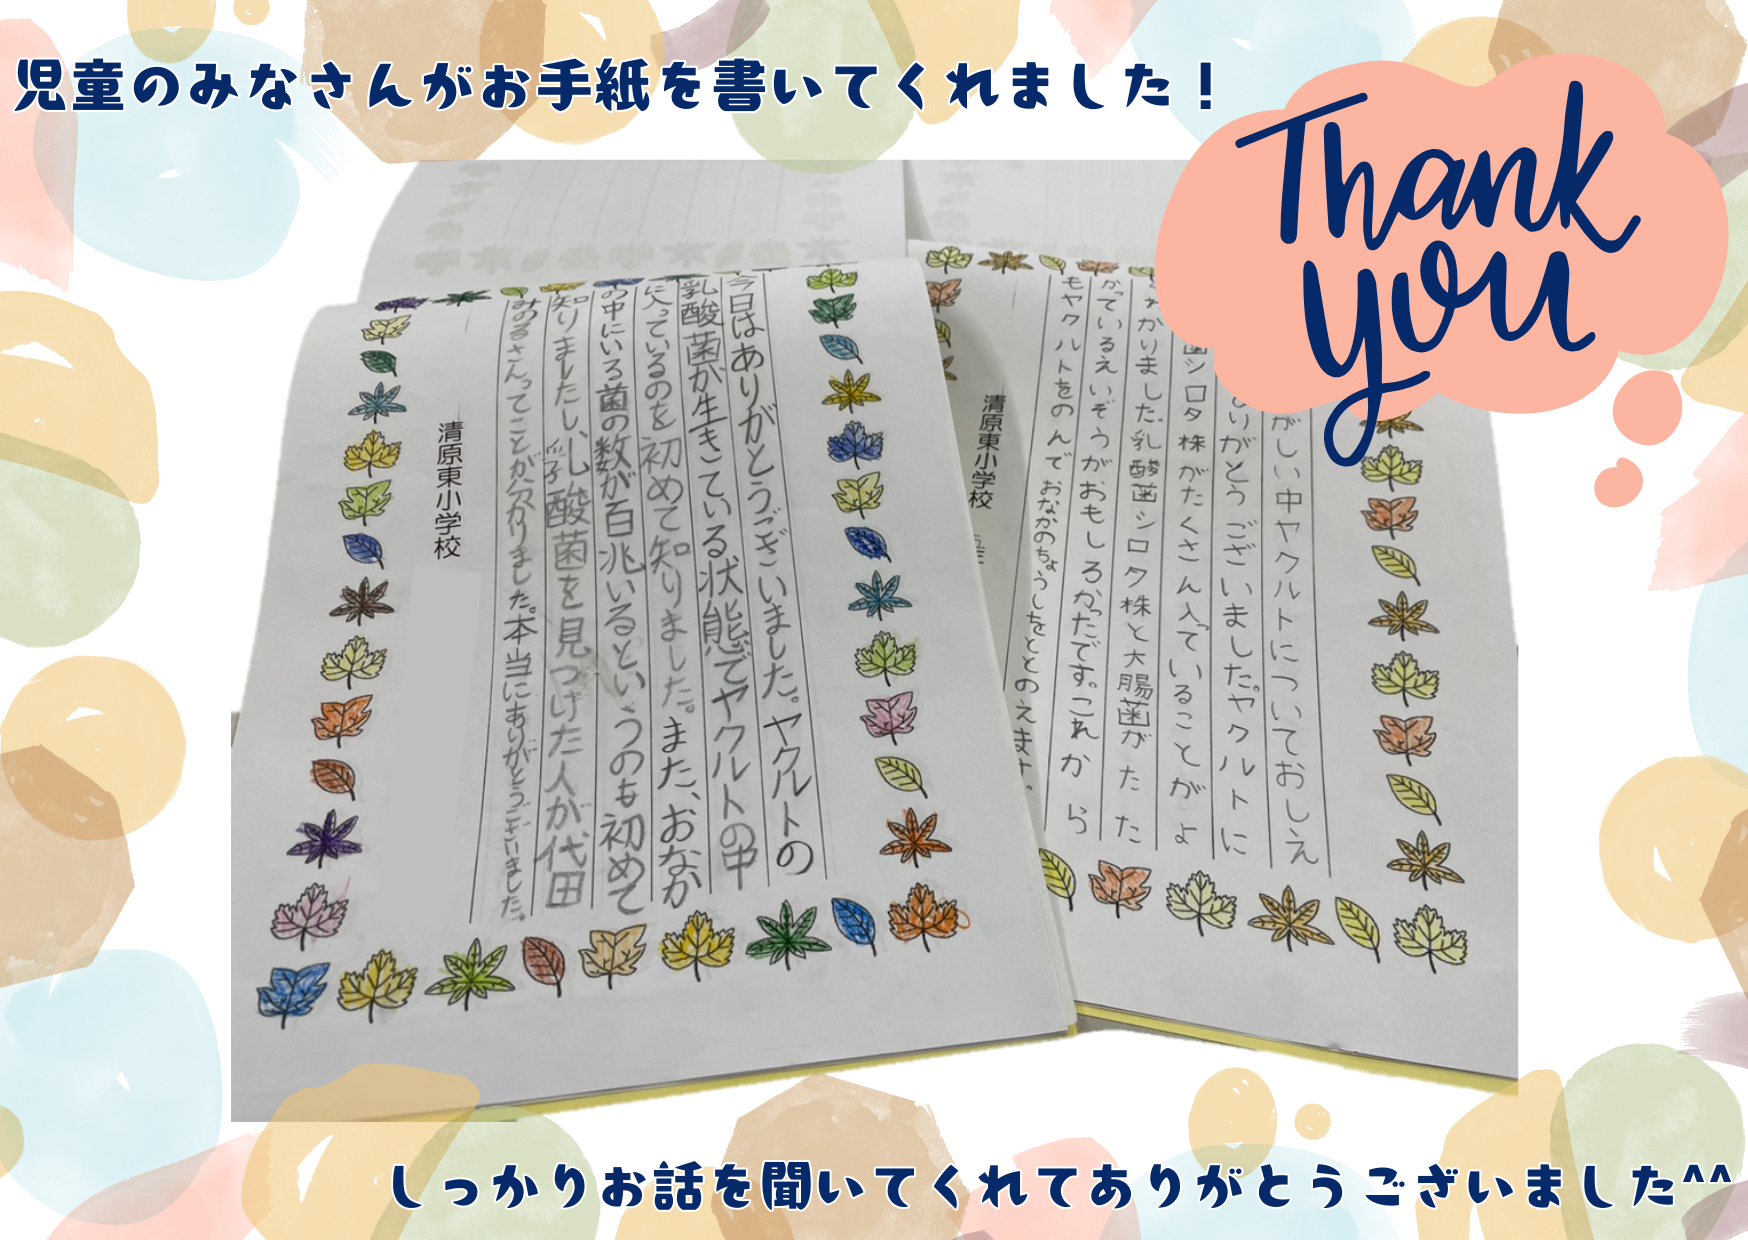 児童のみなさんがお手紙を書いてくれました！
Thank
you
今日はありがとうございました。ヤクルトの
乳酸菌が生きている状態でヤクルトの中
に入っているのを初めて知りました。また、おなか
の中にいる菌の数が百兆いるというのも初めて
知りましたし、乳酸菌を見つけた人が代田
みのるさんってことが分かりました。本当にありがとうございました。
清原東小学校
がしい中ヤクルトについておしえ
りがとうございました。ヤクルトに
菌シロタ株がたくさん入っていることがよ
わかりました。乳酸菌シロタ株と大腸菌がたた
かっているえいぞうがおもしろかったです。これから
もヤクルトをのんでおなかのちょうしをととのえます。
清原東小学校
しっかりお話を聞いてくれてありがとうございました^^